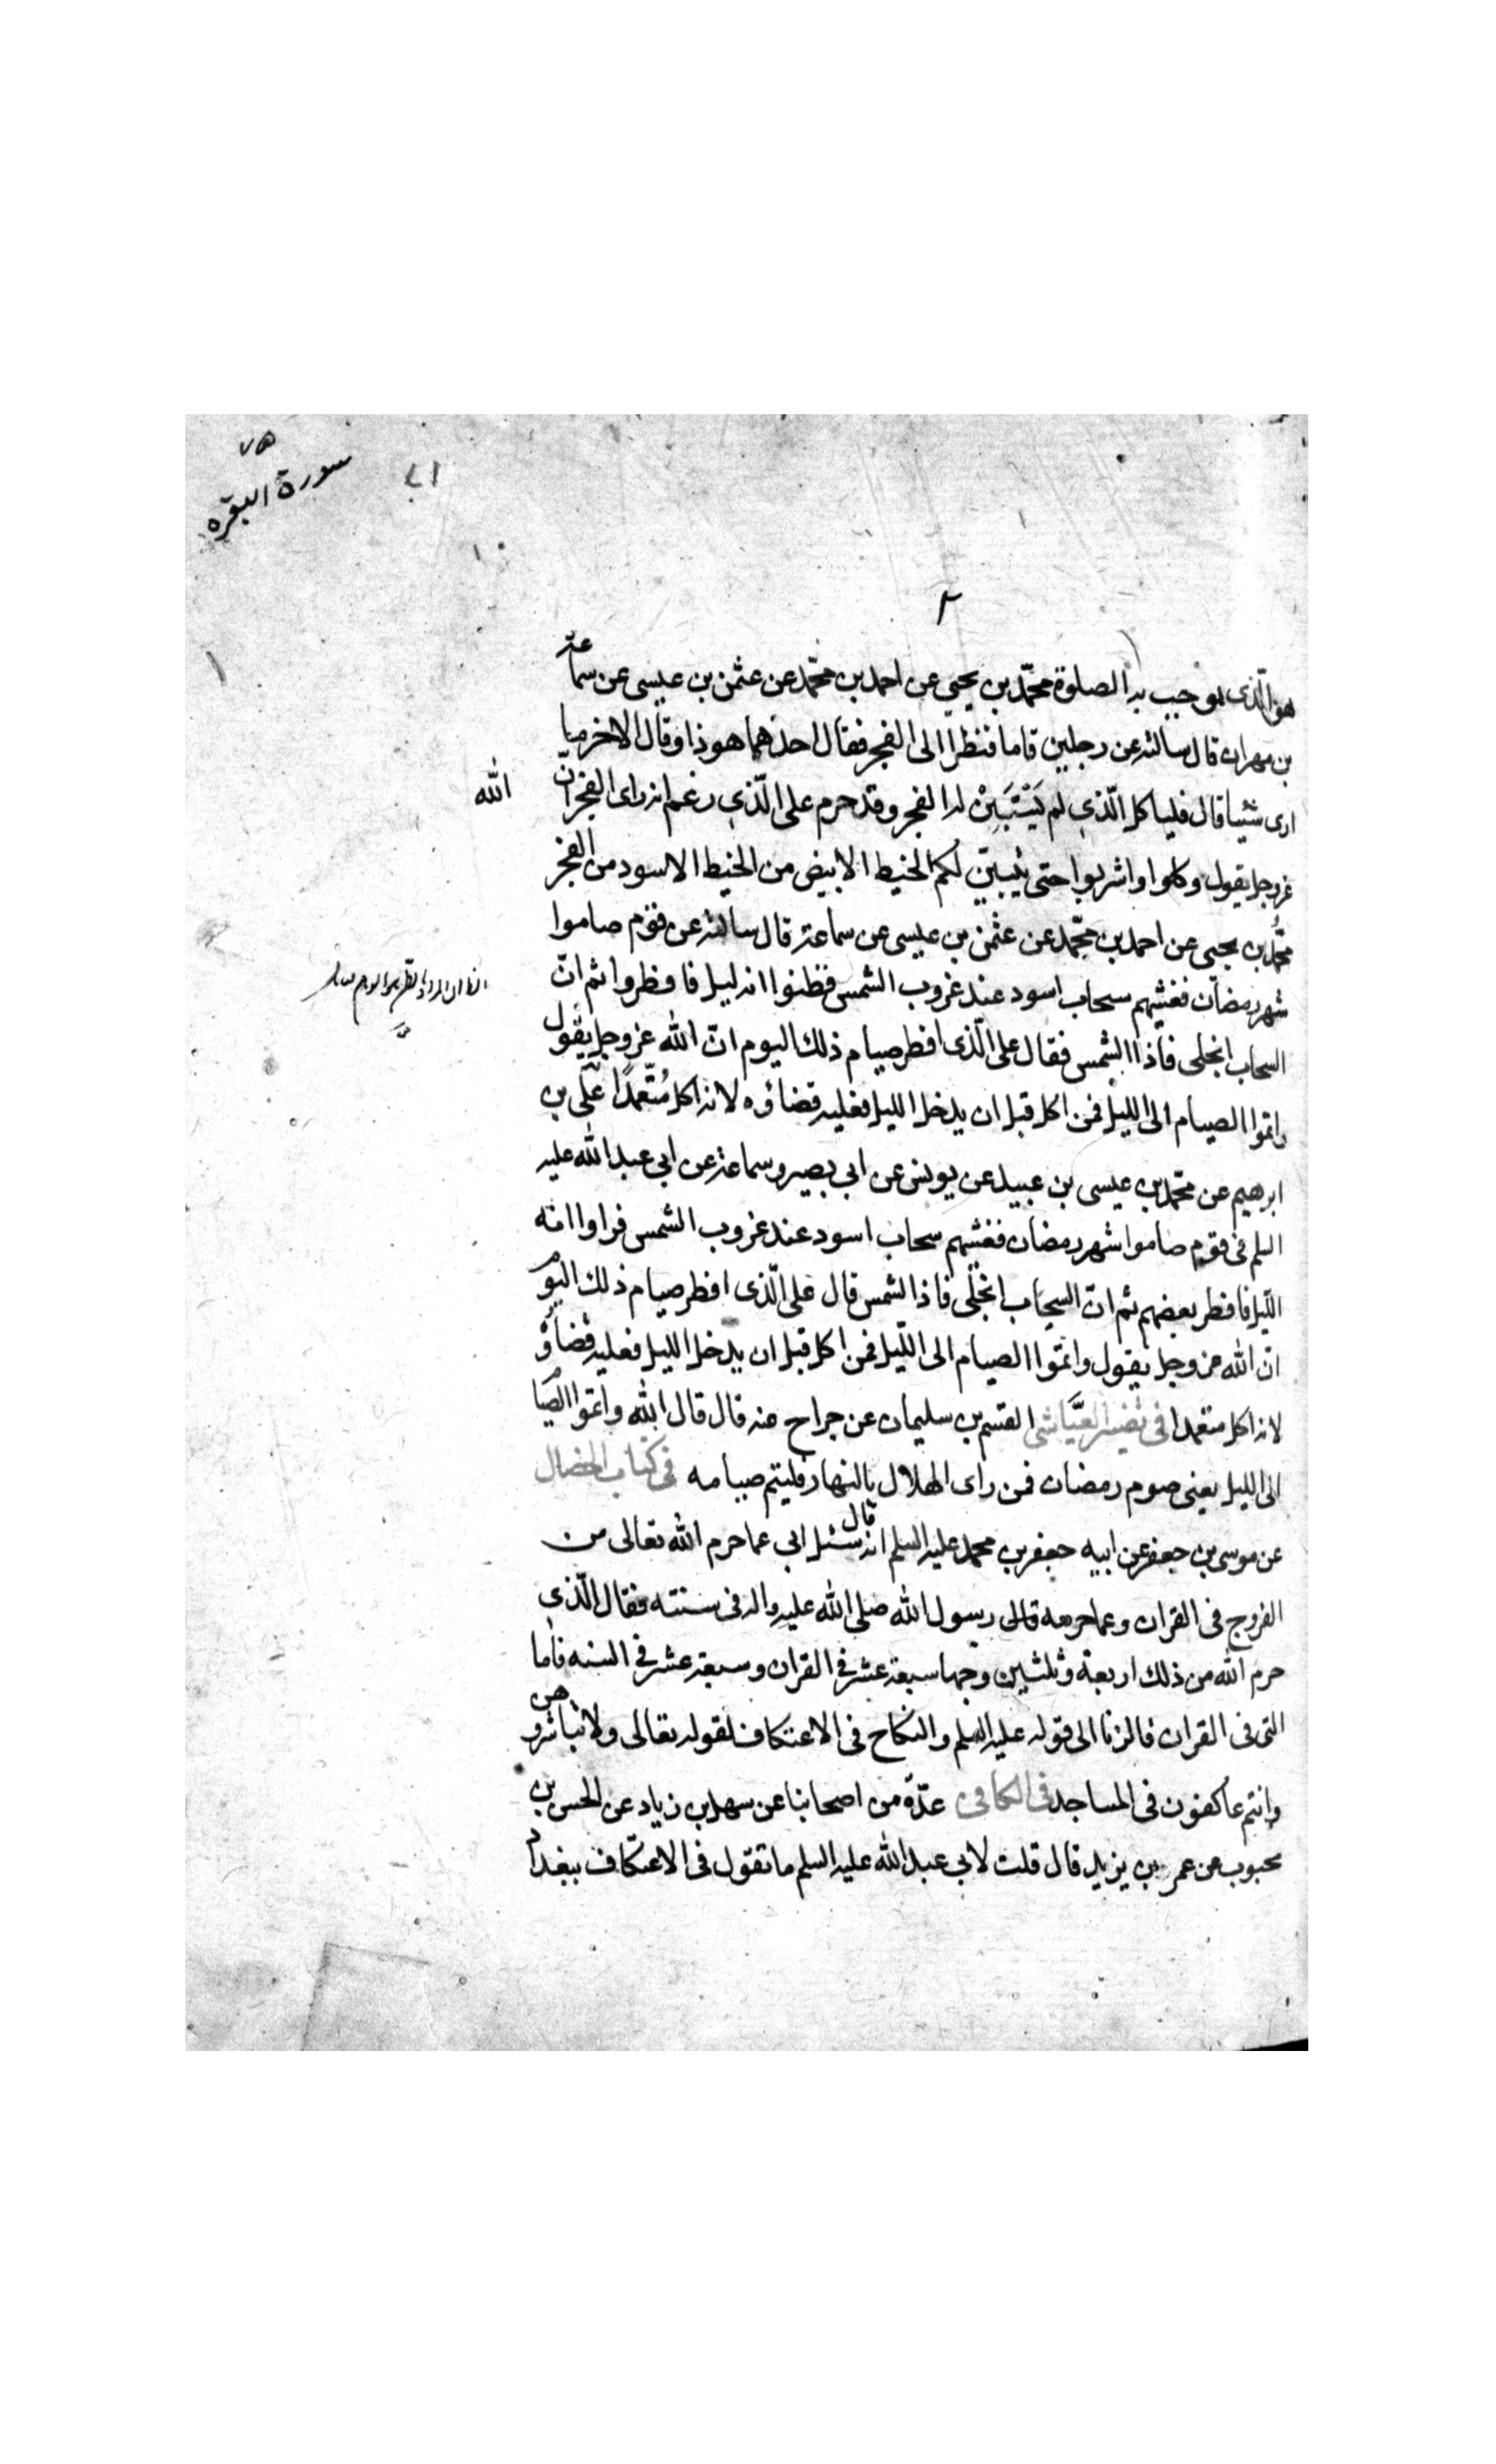 سورة البقرة
٢
هو الذى يوجب به الصلوة محمّد بن يحيى عن احمد بن محمّد عن عثمن بن عيسى عن سماعة
بن مهران قال سالته عن رجلين قاما فنظرا الى الفجر فقال احدهما هوذا وقال الاخر ما
ارى شيئا قال فلياكل الّذى لم يَسْتَبِنْ له الفجر وقد حرم على الّذى زعم انه راى الفجر انّ الله
عز وجل يقول وكلوا واشربوا حتى يتبيّن لكم الخيط الابيض من الخيط الاسود من الفجر
محمّد بن يحيى عن احمد بن محمّد عن عثمن بن عيسى عن سماعة قال سالته عن قوم صاموا
شهر رمضان فغشيهم سحاب اسود عند غروب الشمس فظنوا انه ليل فافطروا ثم انّ
السحاب انجلى فاذا الشمس فقال على الّذى افطر صيام ذلك اليوم انّ الله عز وجل يقول
واتموا الصيام الى الليل فمن اكل قبل ان يدخل الليل فعليه قضاؤه لانه اكل مُتعّمدًا علّى بن
ابرهيم عن محمّد بن عيسى بن عبيد عن يونس عن ابى بصير وسماعة عن ابى عبد الله عليه
السلم فى قوم صاموا شهر رمضان فغشيهم سحاب اسود عند غروب الشمس فراوا انه
اللّيل فافطر بعضهم ثم انّ السحاب انجلّى فاذا الشمس قال على الّذى افطر صيام ذلك اليوم
انّ الله عز وجل يقول واتمّوا الصيام الى اللّيل فمن اكل قبل ان يدخل الليل فعليه قضاؤه
لانه اكل متعمدا فى تفسير العيّاشى القسم بن سليمان عن جراح عنه قال قال الله واتموا الصيام
الى الليل يعنى صوم رمضان فمن راى الهلال بالنهار فليتم صيامه فى كتاب الخصال
عن موسى بن جعفر عن ابيه جعفر بن محمد عليه السلم انه قال سئل ابى عما حرم الله تعالى من
الفروج فى القران وعما حرمه رسول الله صلى الله عليه واله فى سنته فقال الّذى
حرم الله من ذلك اربعة وثلثين وجها سبعة عشر فى القران وسبعة عشر فى السنه فاما
التى فى القران فالزنا الى قوله عليه السلم والنكاح فى الاعتكاف لقوله تعالى ولا تباشروهن
وانتم عاكفون فى المساجد فى الكافى عدّة من اصحابنا عن سهل بن زياد عن الحسن بن
محبوب عن عمر بن يزيد قال قلت لابى عبد الله عليه السلم ما تقول فى الاعتكاف ببغداد